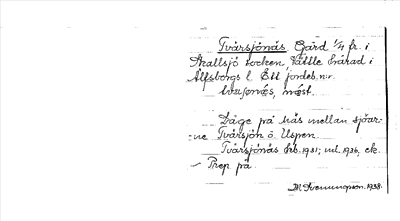 Tvärsjönäs Gård 1/4 fr. i
Skallsjö socken Vättle härad i
Älfsborgs l. Ett jordeb.n:r.
näst.
Läge på näs mellan sjöar-
ne Tvärsjön o. Uspen.
Tvärsjönäs 1931; 1936, ek.
Prep på
1938.